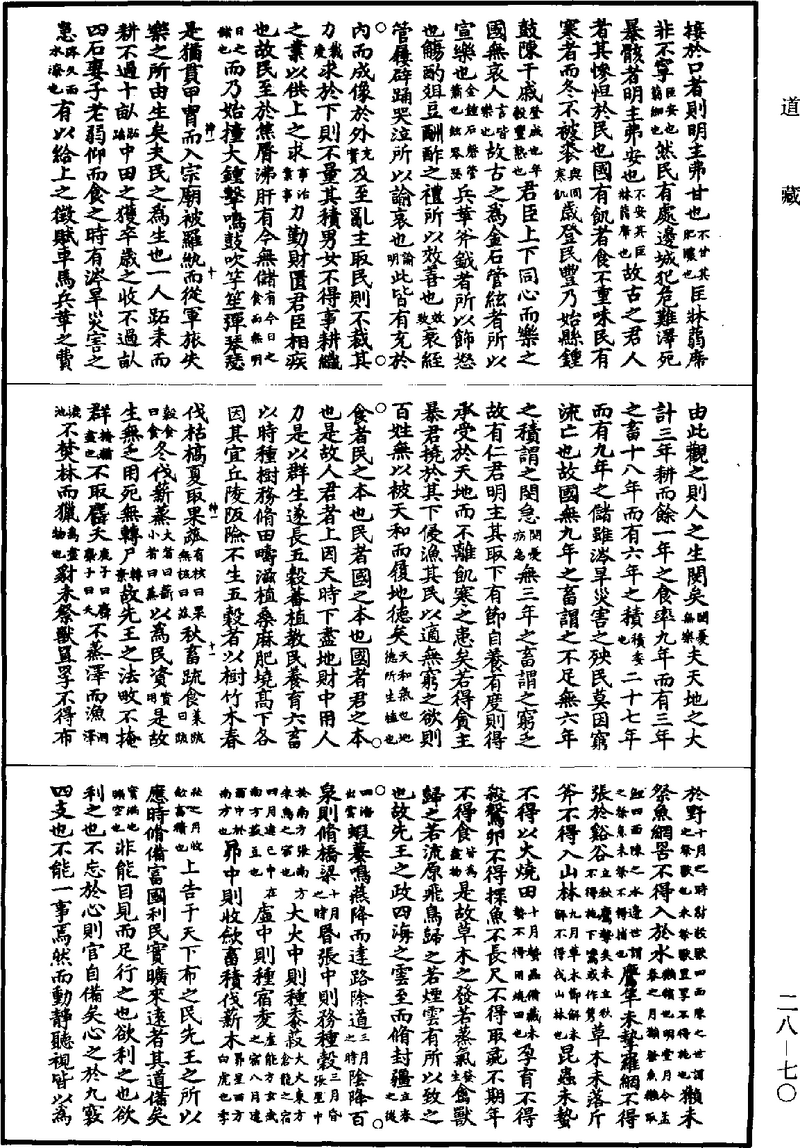 道藏
接於口者則明主弗甘也不甘其肥醲也匡牀蒻席
非不寧匡安也蒻細也然民有處邊城犯危難澤死
暴骸者明主弗安也不安其匡牀蒻席也故古之君人
者其慘怛於民也國有飢者食不重味民有
寒者而冬不被裘與同飢寒歲登民豐乃始縣鍾
鼓陳干戚登成也年穀豐熟也君臣上下同心而樂之
國無哀人言皆樂也故古之為金石管絃者所以
宣樂也金鍾石磬管簫也絃琴瑟兵革斧鉞者所以飾怒
也觴酌俎豆酬酢之禮所以效善也效致衰絰
管屨辟踊哭泣所以諭哀也諭明此皆有充於
內而成像於外充實及至亂主取民則不裁其
力裁度求於下則不量其積男女不得事耕織
之業以供上之求事治業事力勤財匱君臣相疾
也故民至於焦脣沸肝有今無儲有今日之食而無明
日之儲也而乃始撞大鍾擊鳴鼓吹竽笙彈琴瑟
是猶貫甲冑而入宗廟被羅紈而從軍旅失
樂之所由生矣夫民之為生也一人跖耒而
耕不過十畝跖蹈中田之獲卒歲之收不過畝
四石妻子老弱仰而食之時有涔旱災害之
患涔久而水潦也有以給上之徵賦車馬兵革之費
由此觀之則人之生閔矣閔憂無樂夫天地之大
計三年耕而餘一年之食率九年而有三年
之畜十八年而有六年之積積委也二十七年
而有九年之儲雖涔旱災害之殃民莫困窮
流亡也故國無九年之畜謂之不足無六年
之積謂之閔急閔憂病急無三年之畜謂之窮乏
故有仁君明主其取下有節自養有度則得
承受於天地而不離飢寒之患矣若得貪主
暴君撓於其下侵漁其民以適無窮之欲則
百姓無以被天和而履地德矣天和氣也地德所生植也
食者民之本也民者國之本也國者君之本
也是故人君者上因天時下盡地財中用人
力是以群生遂長五穀蕃植教民養育六畜
以時種樹務脩田疇滋植桑麻肥墝高下各
因其宜丘陵阪險不生五穀者以樹竹木春
伐枯槁夏取果蓏有核曰果無核曰蓏秋畜疏食菜蔬曰疏
穀食曰食冬伐薪蒸大者曰薪小者曰蒸以為民資資用是故
生無乏用死無轉尸轉棄故先王之法畋不掩
群掩猶盡也不取麛夭鹿子曰麛麋子曰夭不蒸澤而漁涸澤
漉池不焚林而獵為盡物也豺未祭獸罝罦不得布
於野十月之時豺殺獸四面陳之世謂之祭獸也未祭獸罝罦不得施也獺未
祭魚網罟不得入於水獺獱也明堂月令孟春之月獺祭魚獺取
鯉四面陳之水邊世謂之祭魚未祭不得捕也鷹隼未摯羅網不得
張於谿谷立秋鷹摯矣未立秋不得施也草木未落斤
斧不得入山林九月草木節解未解不得伐山林也昆蟲未蟄
不得以火燒田十月蟄蟲備藏未蟄不得用燒田也孕育不得
殺鷇卵不得探魚不長尺不得取彘不期年
不得食皆為盡物是故草木之發若蒸氣發生禽獸
歸之若流原飛鳥歸之若煙雲有所以致之
也故先王之政四海之雲至而脩封疆立春之後
四海出雲蝦蟇鳴燕降而達路除道三月之時陰降百
泉則脩橋梁十月之時昏張中則務種穀三月昏張星中
於南方張南方朱鳥之宿也大火中則種黍菽大火東方蒼龍之宿
四月建巳中在南方菽豆也虛中則種宿麥虛北方玄武之宿八月建
酉中於南方也昴中則收斂畜積伐薪木昴星西方白虎也季
秋之月收斂畜積也上告于天下布之民先王之所以
應時脩備富國利民實曠來遠者其道備矣
實滿也曠空也非能目見而足行之也欲利之也欲
利之也不忘於心則官自備矣心之於九竅
四支也不能一事焉然而動靜聽視皆以為
二八—七〇